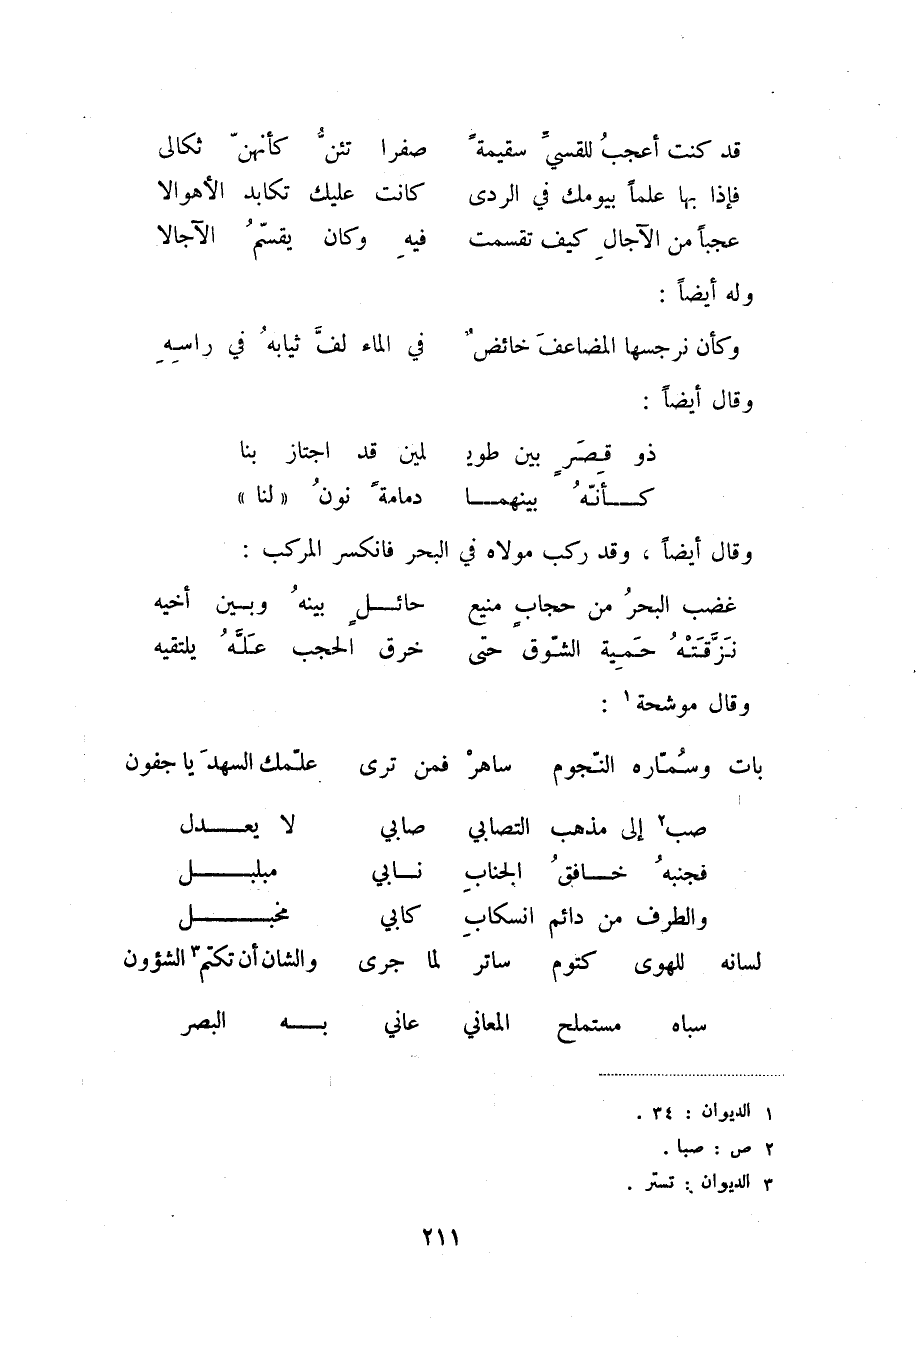 قد كنت أعجبُ للقسيِّ سقيمةً صفرا تئنُّ كأنهنّ ثكالى
فإذا بها علماً بيومك في الردى كانت عليك تكابد الأهوالا
عجباً من الآجالِ كيف تقسمت فيهِ وكان يقسّمُ الآجالا
وله أيضاً :
وكأن نرجسها المضاعفَ خائضٌ في الماء لفَّ ثيابهُ في راسِهِ
وقال أيضاً :
ذو قِصَرٍ بين طويـ لمين قد اجتاز بنا
كـــأنّهُ بينهمـــا دمامةً نونُ «لنا»
وقال أيضاً ، وقد ركب مولاه في البحر فانكسر المركب :
غضب البحرُ من حجابٍ منيع حائـــلٍ بينهُ وبـــين أخيه
نَزَّقَتْهُ حَمِية الشّوق حتى خرق الحجب علَّهُ يلتقيه
وقال موشحة١ :
بات وسُمّاره النّجوم ساهرْ فمن ترى علّمك السهدَ يا جفون
صب٢ إلى مذهب التصابي صابي لا يعـــدل
فجنبهُ خـــافقُ الجنابِ نـــابي مبلبـــل
والطرف من دائم انسكابِ كابي مخبـــل
لسانه للهوى كتوم ساتر لما جرى والشان أن تكتم٣ الشؤون
سباه مستملح المعاني عاني بـــه البصر
١ الديوان : ٣٤ .
٢ ص : صبا .
٣ الديوان : تستر .
٢١١